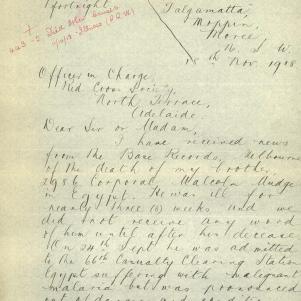 fortnight.
Talgamatta,
Moppin,
Moree,
N. S. W.
8th Nov. 1918
Officer in Charge,
Red Cross Society,
North Terrace,
Adelaide
Dear Sir or Madam,
I have received news
from the Base Records, Melbourne
of the death of my brother,
2986 Corporal Malcolm Mudge
in Egypt. He was ill for
nearly three (3) weeks and we
did not receive any word
of him until after his decease
On 24th Sept he was admitted
to the 66th Casualty Clearing Station
Egypt suffering with malignant
malaria but was pronounced
out of danger